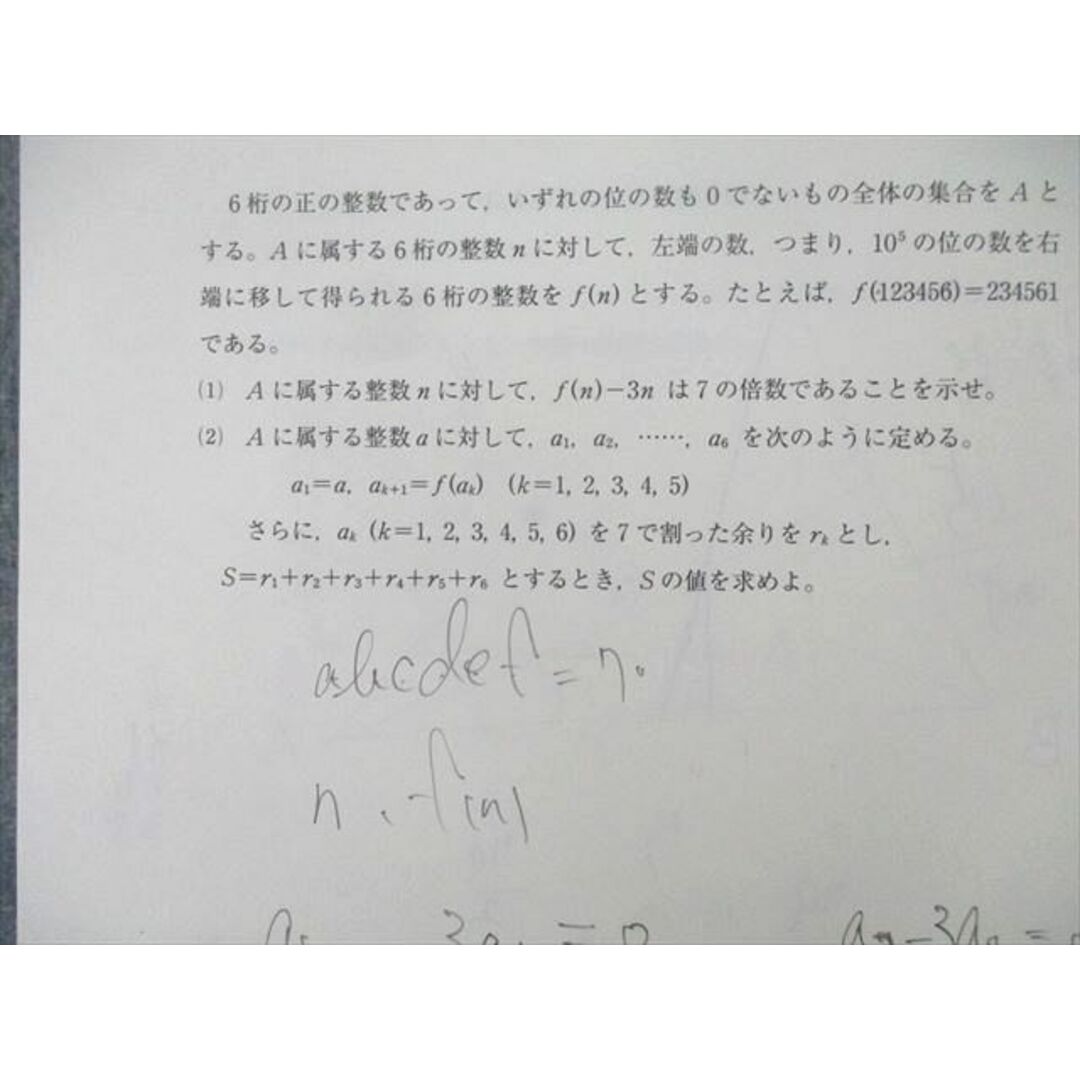 6桁の正の整数であって，いずれの位の数も0でないもの全体の集合をAと
する。Aに属する6桁の整数nに対して，左端の数，つまり，10⁵の位の数を右
端に移して得られる6桁の整数をf(n)とする。たとえば，f(123456)=234561
である。
(1) Aに属する整数nに対して，f(n)−3nは7の倍数であることを示せ。
(2) Aに属する整数aに対して，a₁，a₂，……，a₆を次のように定める。
a₁=a，aₖ₊₁=f(aₖ) (k=1, 2, 3, 4, 5)
さらに，aₖ (k=1, 2, 3, 4, 5, 6) を7で割った余りをrₖとし，
S=r₁+r₂+r₃+r₄+r₅+r₆とするとき，Sの値を求めよ。
abcdef=n。
n、f(n)